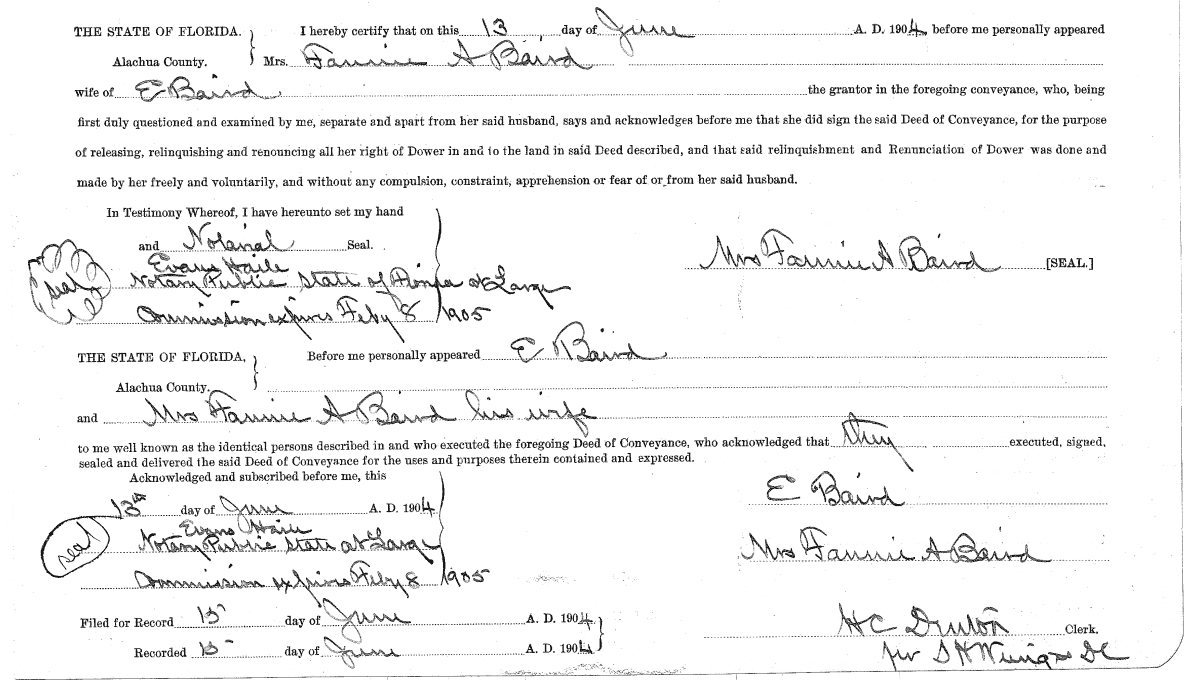 THE STATE OF FLORIDA. I hereby certify that on this 13 day of June A. D. 1904, before me personally appeared
Alachua County. Mrs. Fannie A Baird
wife of E Baird the grantor in the foregoing conveyance, who, being
first duly questioned and examined by me, separate and apart from her said husband, says and acknowledges before me that she did sign the said Deed of Conveyance, for the purpose
of releasing, relinquishing and renouncing all her right of Dower in and to the land in said Deed described, and that said relinquishment and Renunciation of Dower was done and
made by her freely and voluntarily, and without any compulsion, constraint, apprehension or fear of or from her said husband.
In Testimony Whereof, I have hereunto set my hand
and Notarial Seal.
Mrs Fannie A Baird [SEAL.]
Evans Haile
seal Notary Public State of Florida at Large
Commission expires Feby 8 1905
THE STATE OF FLORIDA, Before me personally appeared E Baird
Alachua County.
and Mrs Fannie A Baird his wife
to me well known as the identical persons described in and who executed the foregoing Deed of Conveyance, who acknowledged that they executed, signed,
sealed and delivered the said Deed of Conveyance for the uses and purposes therein contained and expressed.
Acknowledged and subscribed before me, this
13th day of June A. D. 1904
E Baird
Evans Haile
seal Notary Public State at Large
Mrs Fannie A Baird
Commission expires Feby 8 1905
Filed for Record 15 day of June A. D. 1904
H C Clerk.
Recorded 15 day of June A. D. 1904
per S H DC